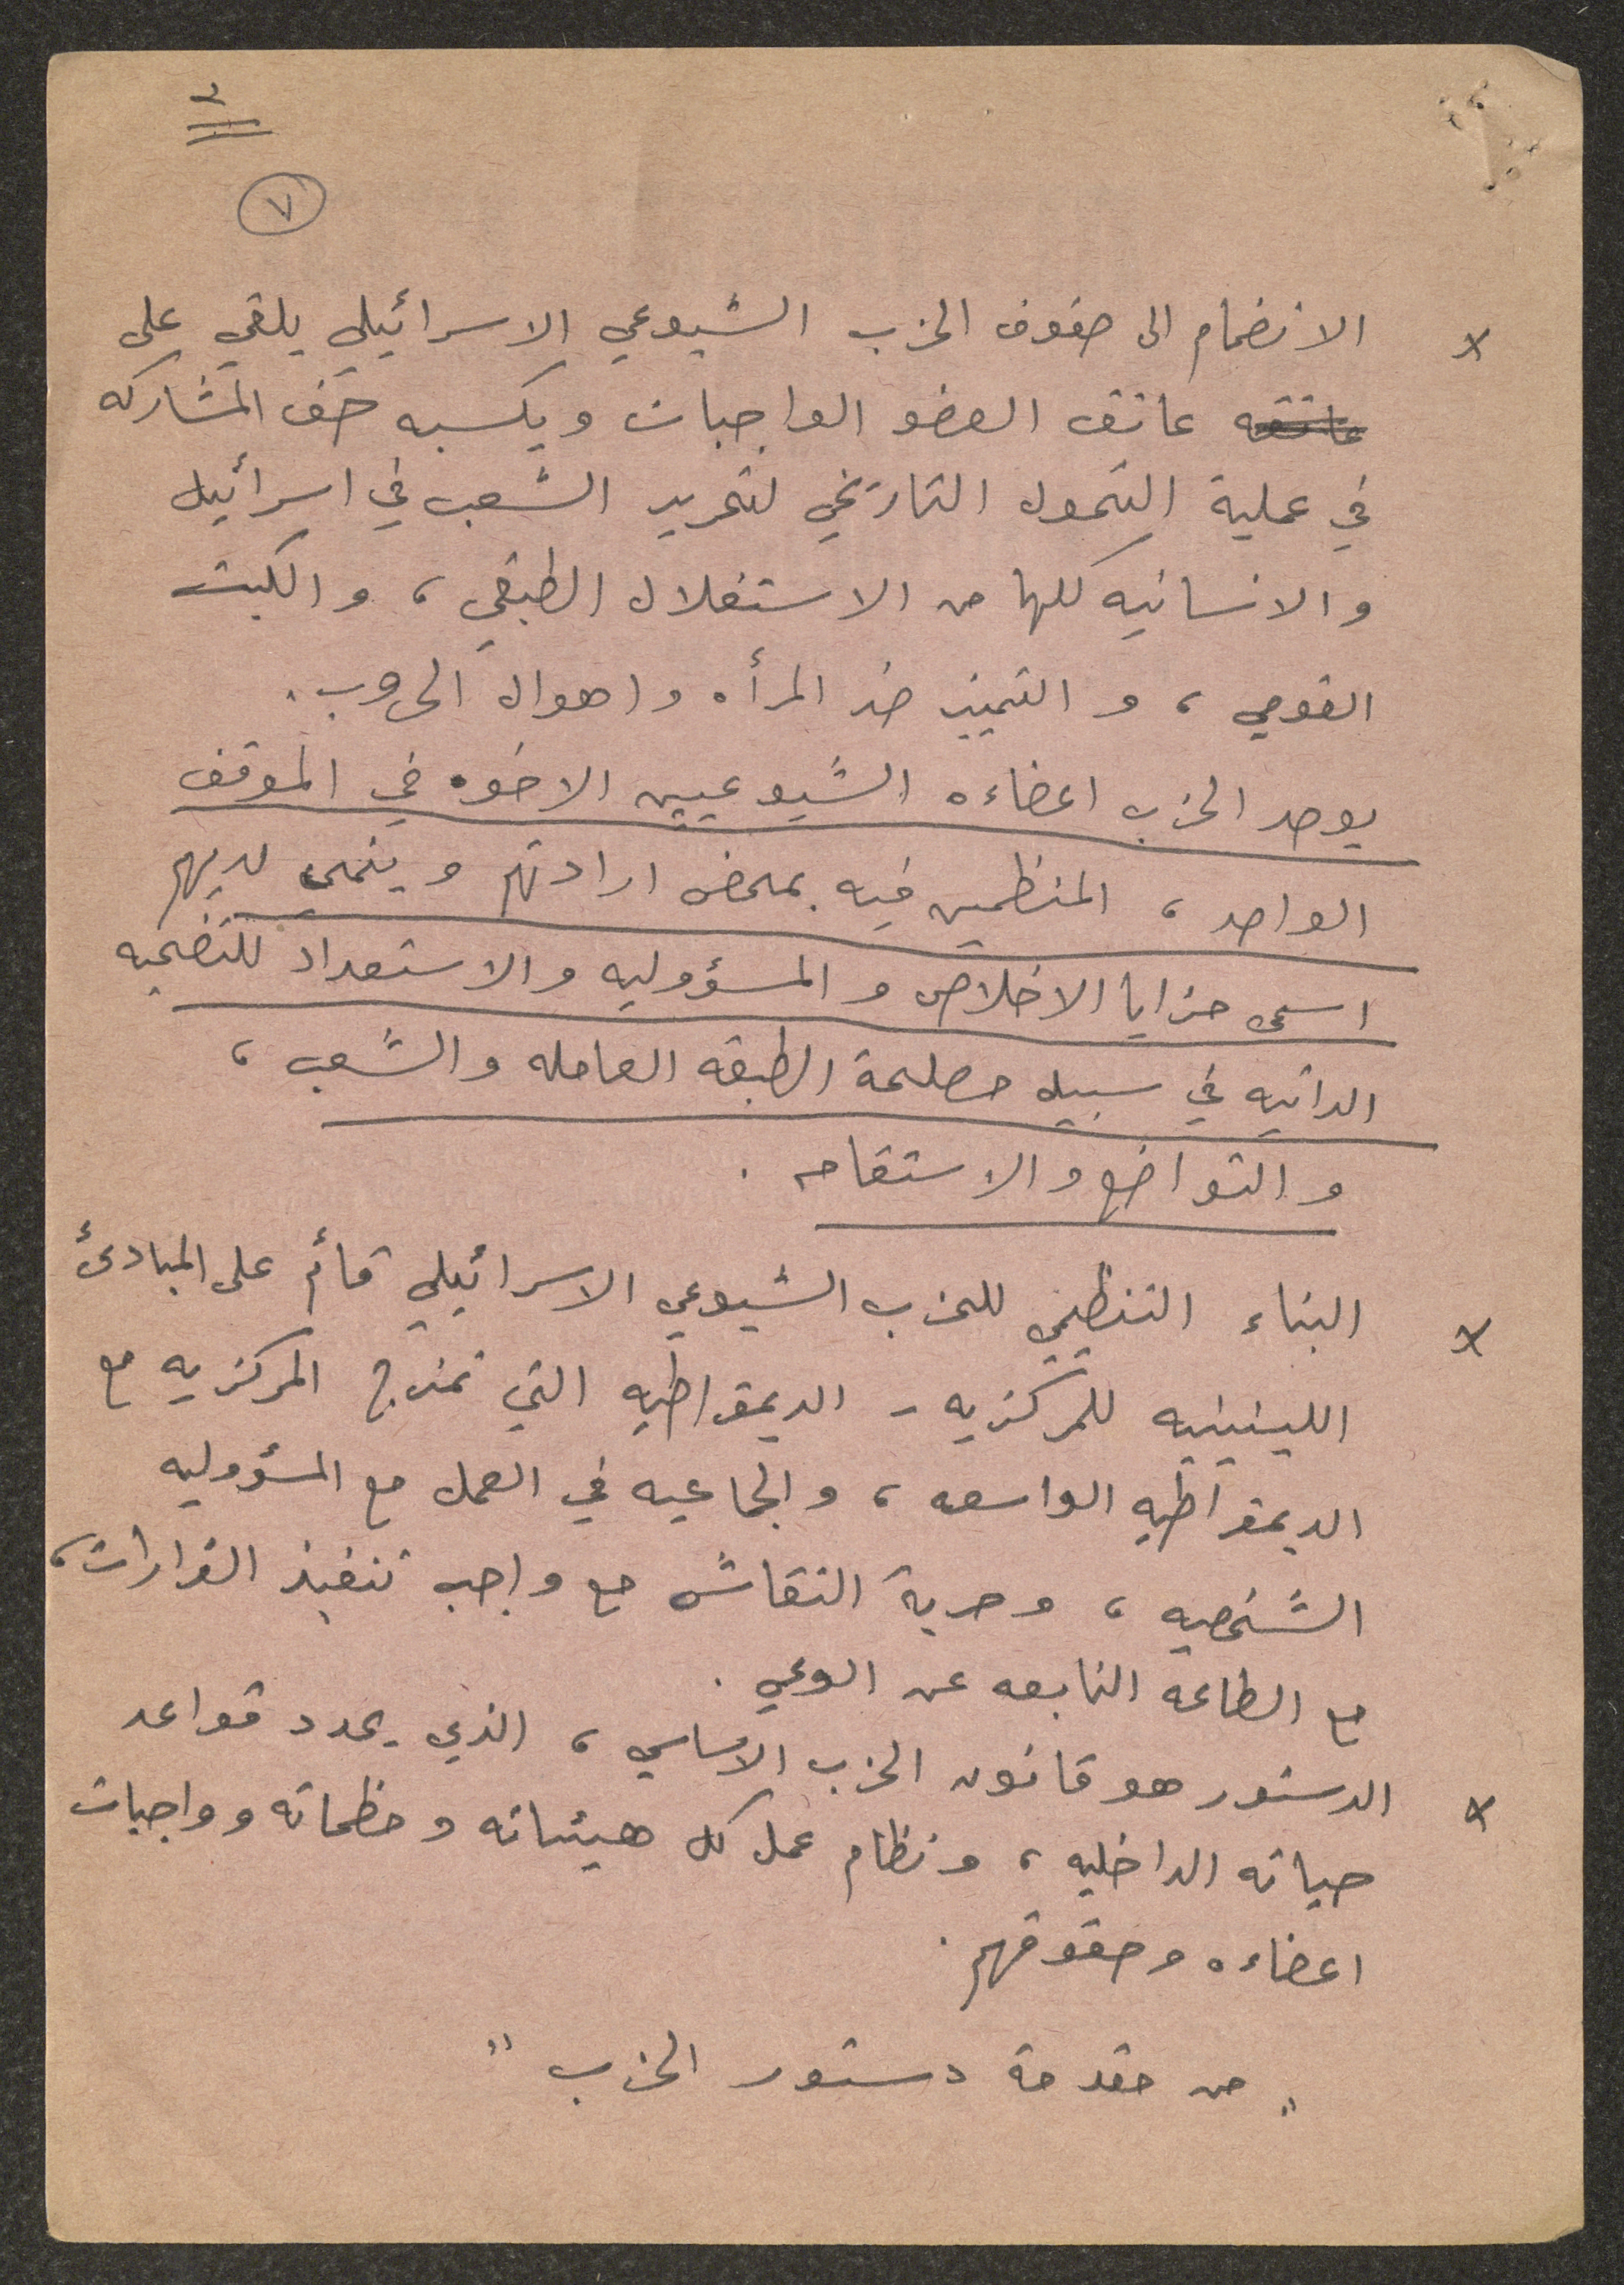 ٢
٧
× الانضمام الى صفوف الحزب الشيوعي الاسرائيلي يلقي على
عاتقه عاتق العضو الواجبات ويكسبه حق المشاركه
في عملية التحول التاريخي لتحرير الشعب في اسرائيل
والانسانيه كلها من الاستغلال الطبقي، والكبت
القومي، والتمييز ضد المرأه واهوال الحروب.
يوحد الحزب اعضاءه الشيوعيين الاخوه في الموقف
الواحد، المنظمين فيه بمحض ارادتهم وينمي لديهم
اسمى مزايا الاخلاص والمسؤوليه والاستعداد للتضحيه
الذاتيه في سبيل مصلحة الطبقه العامله والشعب،
والتواضع والاستقامه.
× البناء التنظيمي للحزب الشيوعي الاسرائيلي قائم على المبادئ
اللينينيه للمركزيه - الديمقراطيه التي تمزج المركزيه مع
الديمقراطيه الواسعه، والجماعيه في العمل مع المسؤوليه
الشخصيه، وحرية النقاش مع واجب تنفيذ القرارات،
مع الطاعة النابعه عن الوعي.
× الدستور هو قانون الحزب الاساسي، الذي يحدد قواعد
حياته الداخليه، ونظام عمل كل هيئاته ومنظماته وواجبات
اعضاءه وحقوقهم.
"من مقدمة دستور الحزب"